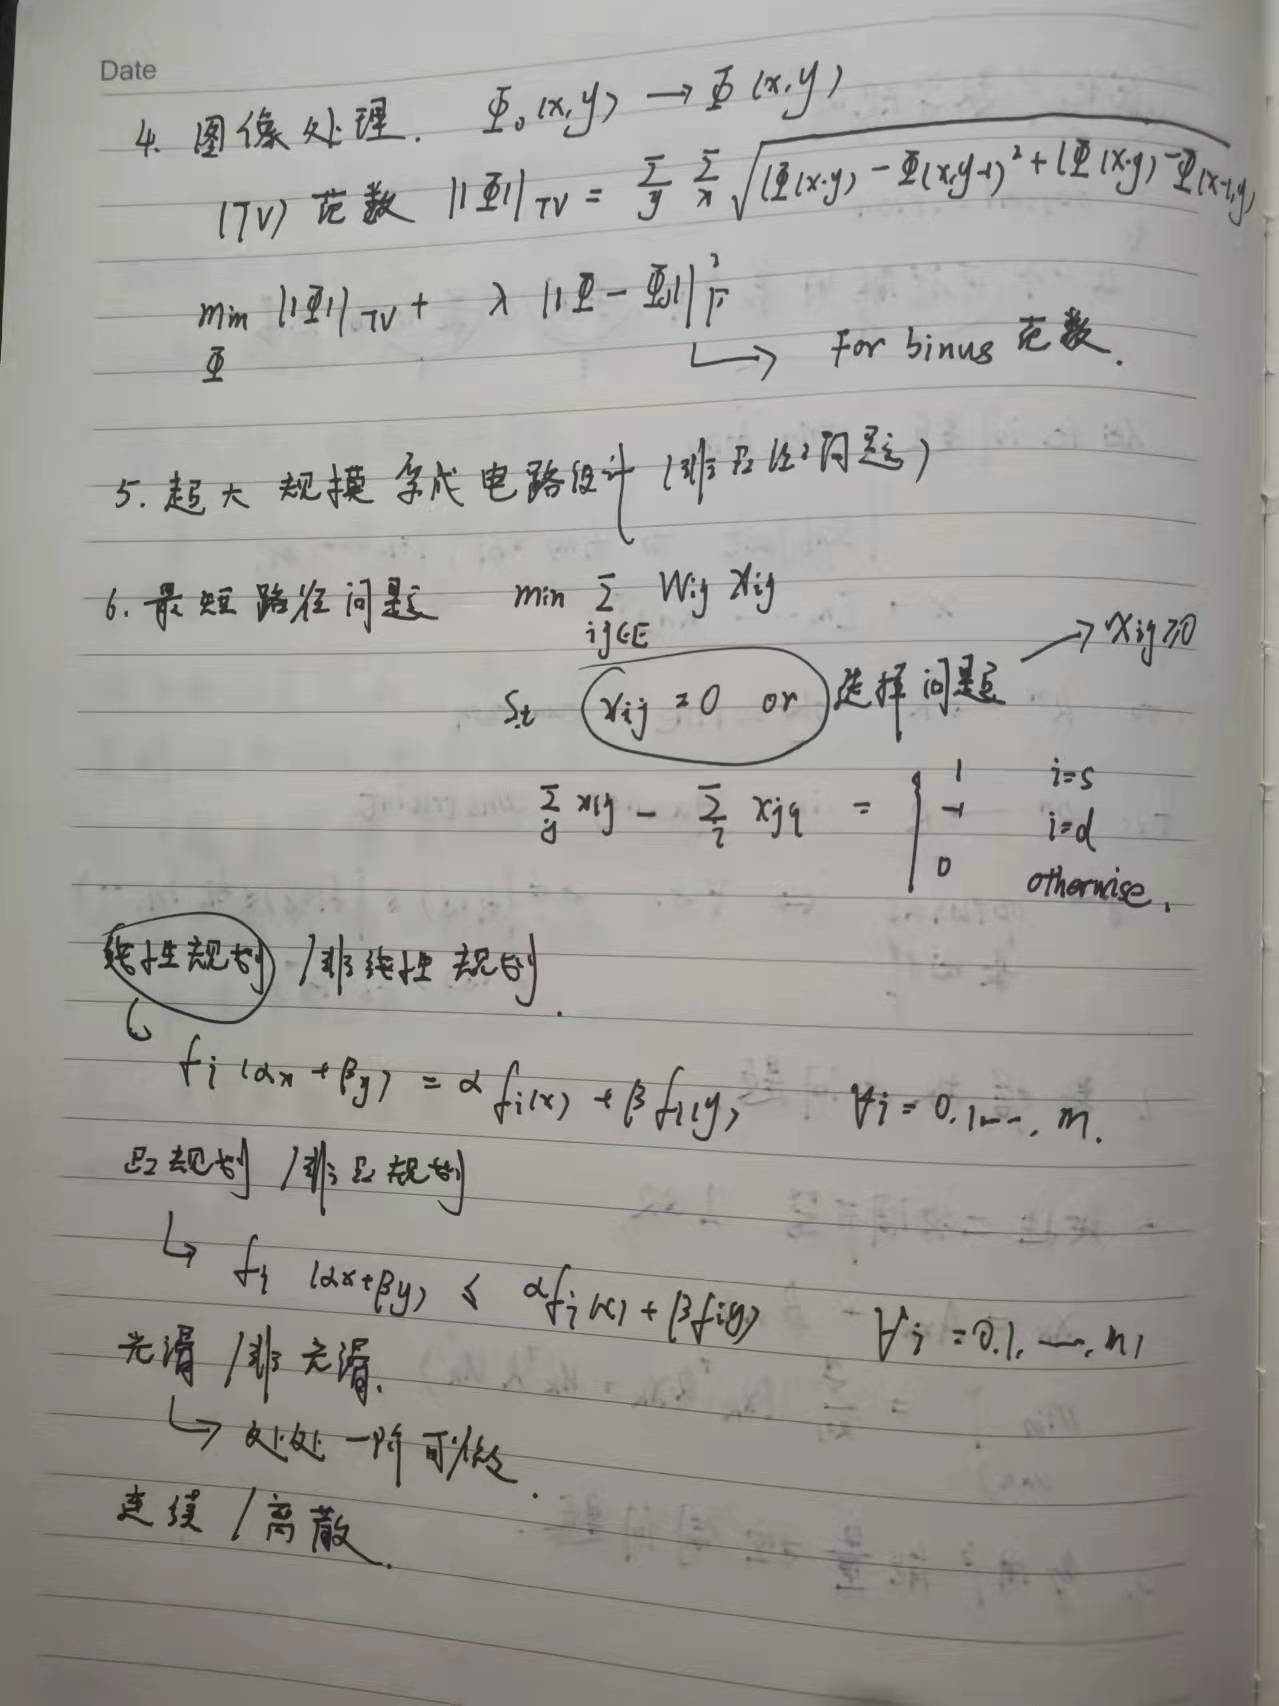 Date
4. 图像处理. Φ₀(x,y) → Φ(x,y)
(TV) 范数 ||Φ||_TV = Σ_y Σ_x √((Φ(x,y) - Φ(x,y-1)² + (Φ(x,y) - Φ(x-1,y)
min_Φ ||Φ||_TV + λ ||Φ - Φ₀||²_F
↳ For binus 范数.
5. 超大规模集成电路设计 (非凸性问题)
6. 最短路径问题 min Σ_{ij∈E} Wij Xij
s.t xij = 0 or 选择问题 → Xij ≥ 0
Σ_j xij - Σ_i xji = { 1 i=s
-1 i=d
0 otherwise.
线性规划 / 非线性规划.
↳ fi(αx + βy) = αfi(x) + βfi(y) ∀i = 0.1..., m.
凸规划 / 非凸规划
↳ fi (αx+βy) ≤ αfi(x) + βfi(y) ∀i = 0.1. ..., m
光滑 / 非光滑.
↳ 处处一阶可微.
连续 / 离散.